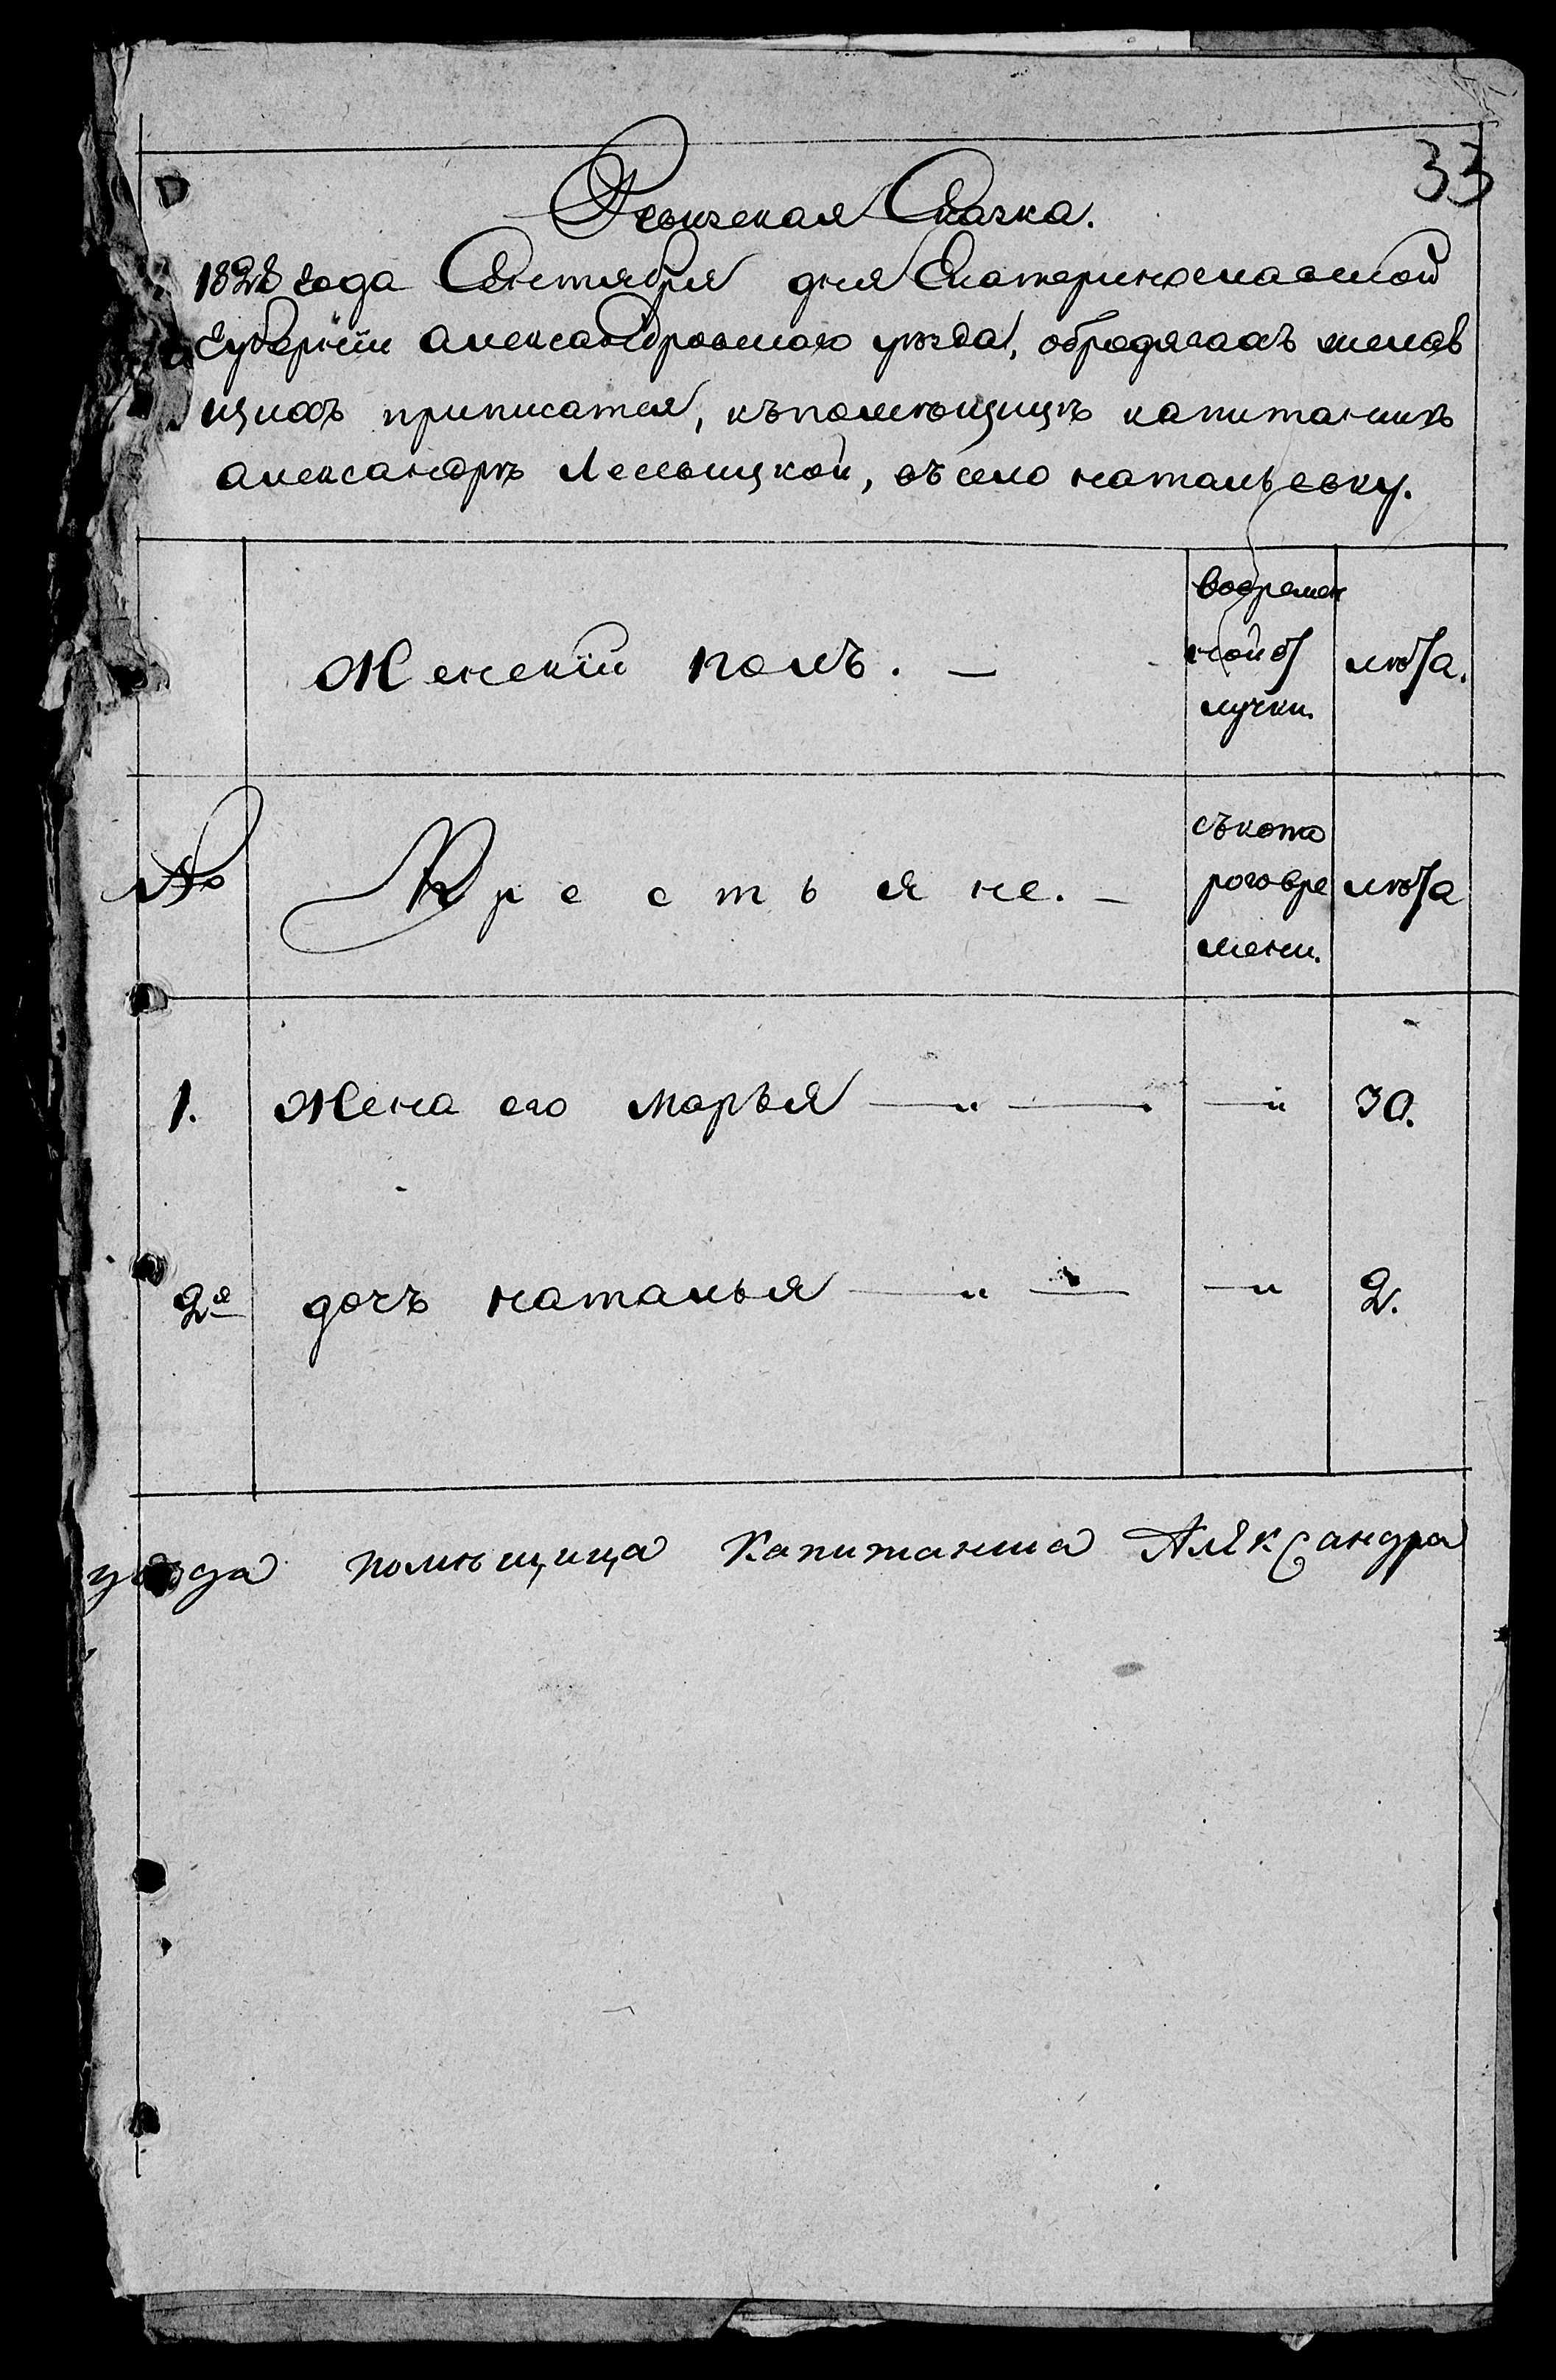 33
Ревизская Сказка.
1828 года Сентября дня Екатеринославской
Губернии Александровского уезда, обродягахъ желаю
щихъ приписатся, къпомещице капитанше
александре Леевицкой, въ село натальевку.
Женскій полъ. —
вовремен
ной от
лучки.
лета.
№
Крестьяне. —
съкото
роговре
мени.
лета
1. Жена его Марья — " — — " 30.
2я дочъ наталья — " — — " 2.
уезда помещица Капитанша Александра